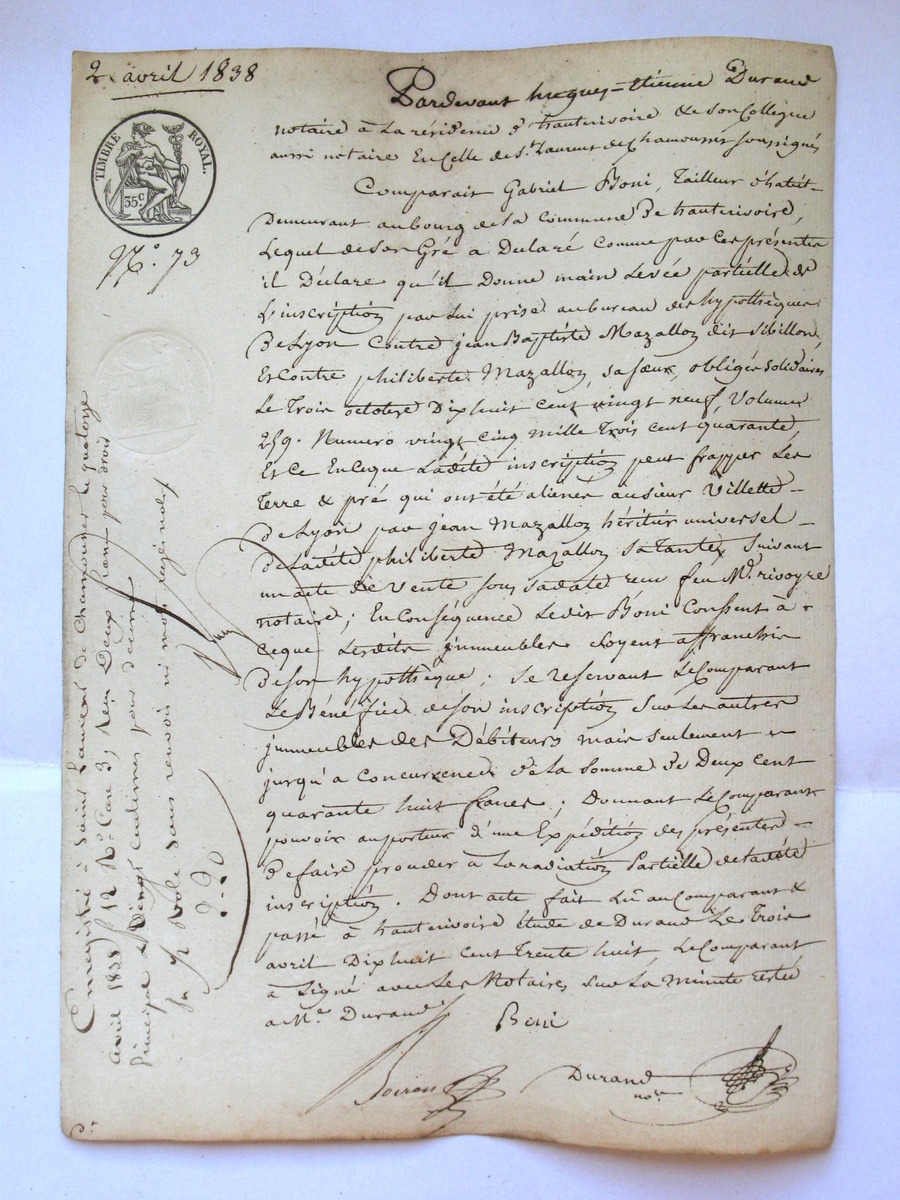 2. avril 1838
TIMBRE ROYAL.
35c.
No. 73
Pardevant hugues=étienne Durand
notaire à La résidence d'hauterivoire & Son Collègue
aussi notaire En celle de St. Laurent de Chamousset Soussignés
Comparait Gabriel Boni, Tailleur d'habit-
Demeurant au bourg de la Commune D'hauterivoire,
Lequel de Son Gré a Déclaré Comme par Ces présentes
il Déclare qu'il Donne main Levée partielle de
L'inscription par Lui prise au bureau des hypothèques
De Lyon Contre jean Baptiste Mazallon dit Sibillon,
Et Contre philiberte Mazallon, sa sœur, obligés Solidaires
Le Trois octobre Dix huit Cent vingt neuf, Volume
259. Numero vingt Cinq Mille Trois Cent quarante
Et Ce En Ceque Ladite inscription peut frapper Les
Terre & pré qui ont été aliénés au sieur Villette -
De Lyon par jean Mazallon héritier universel -
De Ladite philiberte Mazallon Sa Tante, Suivant
un acte de Vente sous Sa date reçu feu Me. rivoyre
notaire; En Conséquence Ledit Boni Consent à
Ceque Lesdits jmmeubles Soyent affranchis
De Son hypothèque; Se reservant Le Comparant
Le Bénéfice de Son inscription Sur Les autres
jmmeubles des Débiteurs mais Seulement
jusqu'a Concurrence de La Somme de Deux Cent
quarante huit francs; Donnant Le Comparant
pouvoir au porteur d'une Expédition des présentes -
De faire procéder à La radiation Partielle de Ladite
inscription. Dont acte fait Lû au Comparant &
passé à hauterivoire Etude de Durand Le Trois
avril Dix huit Cent Trente huit, Le Comparant
a Signé avec Les Notaires Sur La Minute restée
a Me. Durand
Boni
Durand
nore
Enregistré à Saint Laurent de Chamousset le quatorze
avril 1838 fo 12 Ro. Case 3, reçu Deux francs pour droit
principal & Vingt centimes pour décime
Sur Rôle sans renvoi ni mot rayé nul
2 . 20